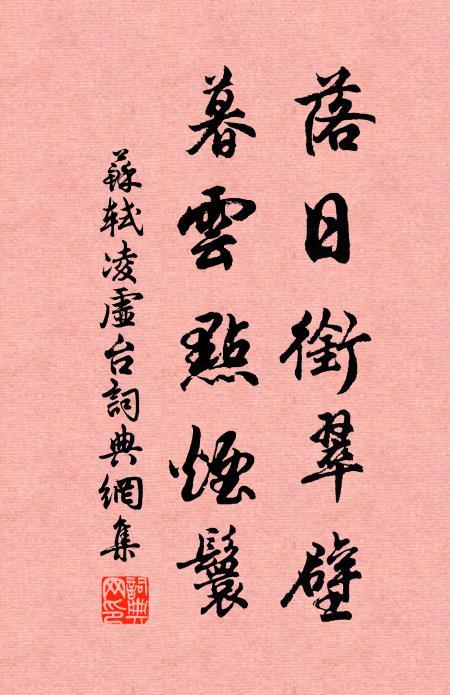 落日銜翠壁
暮雲點煙鬟
蘇軾凌虛台詞典網集
詞典網印